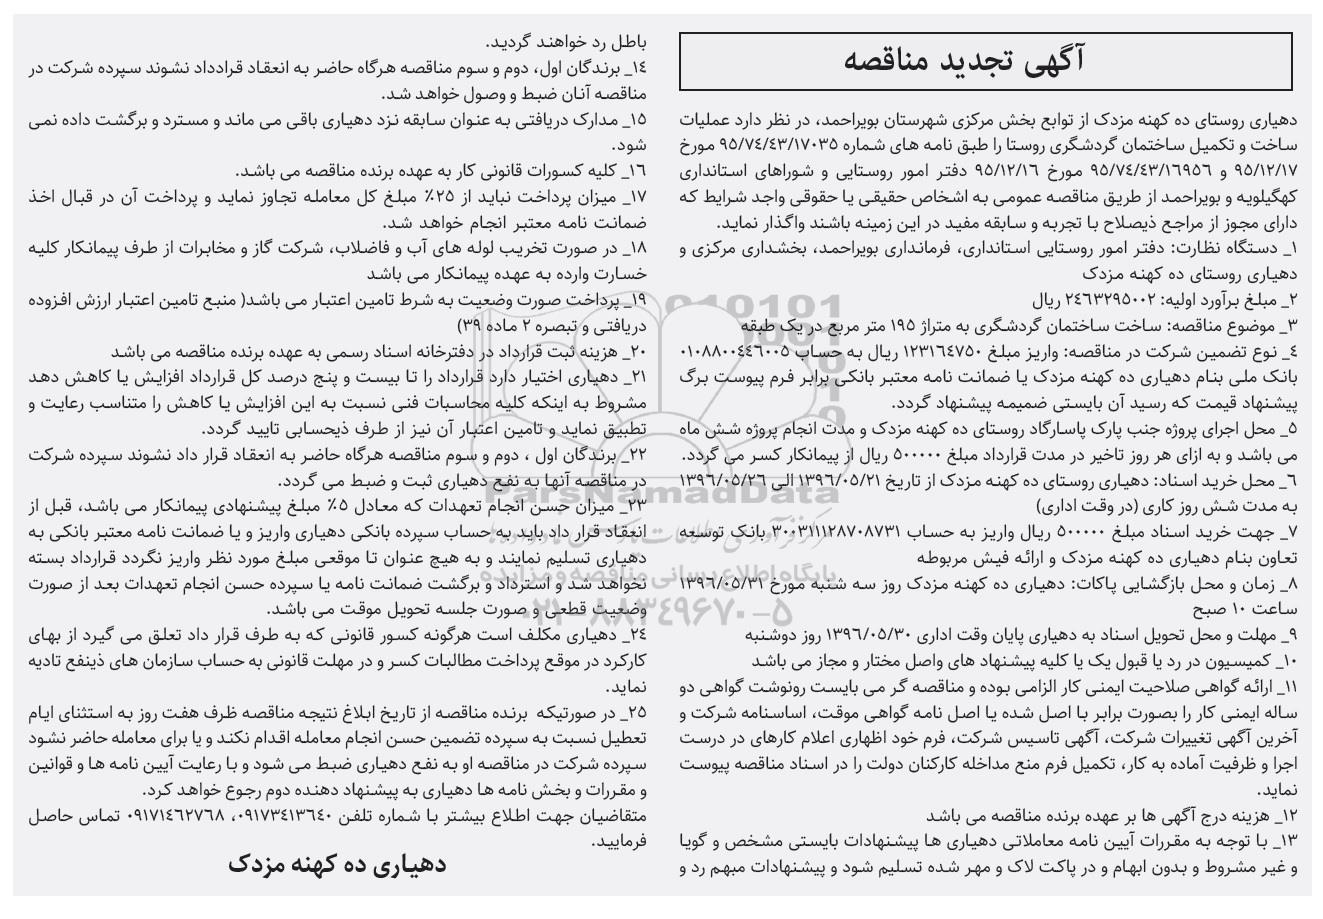 آگهی تجدید مناقصه
دهیاری روستای ده کهنه مزدک از توابع بخش مرکزی شهرستان بویراحمد، در نظر دارد عملیات
ساخت و تکمیل ساختمان گردشگری روستا را طبق نامه های شماره ۹۵/۷٤/٤۳/۱۷۰۳۵ مورخ
۹۵/۱۲/۱۷ و ۹۵/۷٤/٤۳/۱٦۹۵٦ مورخ ۹۵/۱۲/۱٦ دفتر امور روستایی و شوراهای استانداری
کهگیلویه و بویراحمد از طریق مناقصه عمومی به اشخاص حقیقی یا حقوقی واجد شرایط که
دارای مجوز از مراجع ذیصلاح با تجربه و سابقه مفید در این زمینه باشند واگذار نماید.
۱_ دستگاه نظارت: دفتر امور روستایی استانداری، فرمانداری بویراحمد، بخشداری مرکزی و
دهیاری روستای ده کهنه مزدک
۲_ مبلغ برآورد اولیه: ۲٤٦۳۲۹۵۰۰۲ ریال
۳_ موضوع مناقصه: ساخت ساختمان گردشگری به متراژ ۱۹۵ متر مربع در یک طبقه
٤_ نوع تضمین شرکت در مناقصه: واریز مبلغ ۱۲۳۱٦٤۷۵۰ ریال به حساب ۰۱۰۸۸۰۰٤٤٦۰۰۵
بانک ملی بنام دهیاری ده کهنه مزدک یا ضمانت نامه معتبر بانکی برابر فرم پیوست برگ
پیشنهاد قیمت که رسید آن بایستی ضمیمه پیشنهاد گردد.
۵_ محل اجرای پروژه جنب پارک پاسارگاد روستای ده کهنه مزدک و مدت انجام پروژه شش ماه
می باشد و به ازای هر روز تاخیر در مدت قرارداد مبلغ ۵۰۰۰۰۰ ریال از پیمانکار کسر می گردد.
٦_ محل خرید اسناد: دهیاری روستای ده کهنه مزدک از تاریخ ۱۳۹٦/۰۵/۲۱ الی ۱۳۹٦/۰۵/۲٦
به مدت شش روز کاری (در وقت اداری)
۷_ جهت خرید اسناد مبلغ ۵۰۰۰۰۰ ریال واریز به حساب ۳۰۰۳۱۱۱۲۸۷۰۸۷۳۱ بانک توسعه
تعاون بنام دهیاری ده کهنه مزدک و ارائه فیش مربوطه
۸_ زمان و محل بازگشایی پاکات: دهیاری ده کهنه مزدک روز سه شنبه مورخ ۱۳۹٦/۰۵/۳۱
ساعت ۱۰ صبح
۹_ مهلت و محل تحویل اسناد به دهیاری پایان وقت اداری ۱۳۹٦/۰۵/۳۰ روز دوشنبه
۱۰_ کمیسیون در رد یا قبول یک یا کلیه پیشنهاد های واصل مختار و مجاز می باشد
۱۱_ ارائه گواهی صلاحیت ایمنی کار الزامی بوده و مناقصه گر می بایست رونوشت گواهی دو
ساله ایمنی کار را بصورت برابر با اصل شده یا اصل نامه گواهی موقت، اساسنامه شرکت و
آخرین آگهی تغییرات شرکت، آگهی تاسیس شرکت، فرم خود اظهاری اعلام کارهای در درست
اجرا و ظرفیت آماده به کار، تکمیل فرم منع مداخله کارکنان دولت را در اسناد مناقصه پیوست
نماید.
۱۲_ هزینه درج آگهی ها بر عهده برنده مناقصه می باشد
۱۳_ با توجه به مقررات آیین نامه معاملاتی دهیاری ها پیشنهادات بایستی مشخص و گویا
و غیر مشروط و بدون ابهام و در پاکت لاک و مهر شده تسلیم شود و پیشنهادات مبهم رد و
باطل رد خواهند گردید.
۱٤_ برندگان اول، دوم و سوم مناقصه هرگاه حاضر به انعقاد قرادداد نشوند سپرده شرکت در
مناقصه آنان ضبط و وصول خواهد شد.
۱۵_ مدارک دریافتی به عنوان سابقه نزد دهیاری باقی می ماند و مسترد و برگشت داده نمی
شود.
۱٦_ کلیه کسورات قانونی کار به عهده برنده مناقصه می باشد.
۱۷_ میزان پرداخت نباید از ۲۵٪ مبلغ کل معامله تجاوز نماید و پرداخت آن در قبال اخذ
ضمانت نامه معتبر انجام خواهد شد.
۱۸_ در صورت تخریب لوله های آب و فاضلاب، شرکت گاز و مخابرات از طرف پیمانکار کلیه
خسارت وارده به عهده پیمانکار می باشد
۱۹_ پرداخت صورت وضعیت به شرط تامین اعتبار می باشد( منبع تامین اعتبار ارزش افزوده
دریافتی و تبصره ۲ ماده ۳۹)
۲۰_ هزینه ثبت قرارداد در دفترخانه اسناد رسمی به عهده برنده مناقصه می باشد
۲۱_ دهیاری اختیار دارد قرارداد را تا بیست و پنج درصد کل قرارداد افزایش یا کاهش دهد
مشروط به اینکه کلیه محاسبات فنی نسبت به این افزایش یا کاهش را متناسب رعایت و
تطبیق نماید و تامین اعتبار آن نیز از طرف ذیحسابی تایید گردد.
۲۲_ برندگان اول ، دوم و سوم مناقصه هرگاه حاضر به انعقاد قرار داد نشوند سپرده شرکت
در مناقصه آنها به نفع دهیاری ثبت و ضبط می گردد.
۲۳_ میزان حسن انجام تعهدات که معادل ۵٪ مبلغ پیشنهادی پیمانکار می باشد، قبل از
انعقاد قرار داد باید به حساب سپرده بانکی دهیاری واریز و یا ضمانت نامه معتبر بانکی به
دهیاری تسلیم نمایند و به هیچ عنوان تا موقعی مبلغ مورد نظر واریز نگردد قرارداد بسته
نخواهد شد و استرداد و برگشت ضمانت نامه یا سپرده حسن انجام تعهدات بعد از صورت
وضعیت قطعی و صورت جلسه تحویل موقت می باشد.
۲٤_ دهیاری مکلف است هرگونه کسور قانونی که به طرف قرار داد تعلق می گیرد از بهای
کارکرد در موقع پرداخت مطالبات کسر و در مهلت قانونی به حساب سازمان های ذینفع تادیه
نماید.
۲۵_ در صورتیکه برنده مناقصه از تاریخ ابلاغ نتیجه مناقصه ظرف هفت روز به استثنای ایام
تعطیل نسبت به سپرده تضمین حسن انجام معامله اقدام نکند و یا برای معامله حاضر نشود
سپرده شرکت در مناقصه او به نفع دهیاری ضبط می شود و با رعایت آیین نامه ها و قوانین
و مقررات و بخش نامه ها دهیاری به پیشنهاد دهنده دوم رجوع خواهد کرد.
متقاضیان جهت اطلاع بیشتر با شماره تلفن ۰۹۱۷۳٤۱۳٦٤۰، ۰۹۱۷۱٤٦۲۷٦۸ تماس حاصل
فرمایید.
دهیاری ده کهنه مزدک
ParsNamadData
پایگاه اطلاع رسانی مناقصه و مزایده
۰۲۱-۸۸۳٤۹٦۷۰-۵